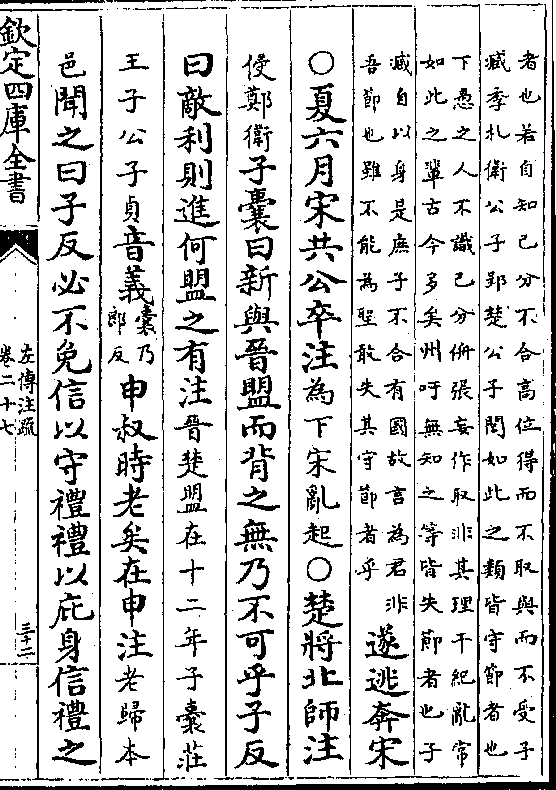 者也若自知己分不合高位得而不取與而不受子
臧季札衛公子郢楚公子閭如此之類皆守節者也
下愚之人不識己分侜張妄作取非其理干紀亂常
如此之輩古今多矣州吁無知之等皆失節者也子
臧自以身是庶子不合有國故言為君非
吾節也雖不能為聖敢失其守節者乎
遂逃奔宋
○夏六月宋共公卒注為下宋亂起○楚將北師注
侵鄭衛子囊曰新與晉盟而背之無乃不可乎子反
曰敵利則進何盟之有注晉楚盟在十二年子囊莊
王子公子貞音義囊乃
郎反
申叔時老矣在申注老歸本
邑聞之曰子反必不免信以守禮禮以庇身信禮之
欽定四庫全書
左傳注疏
卷二十七
三十二